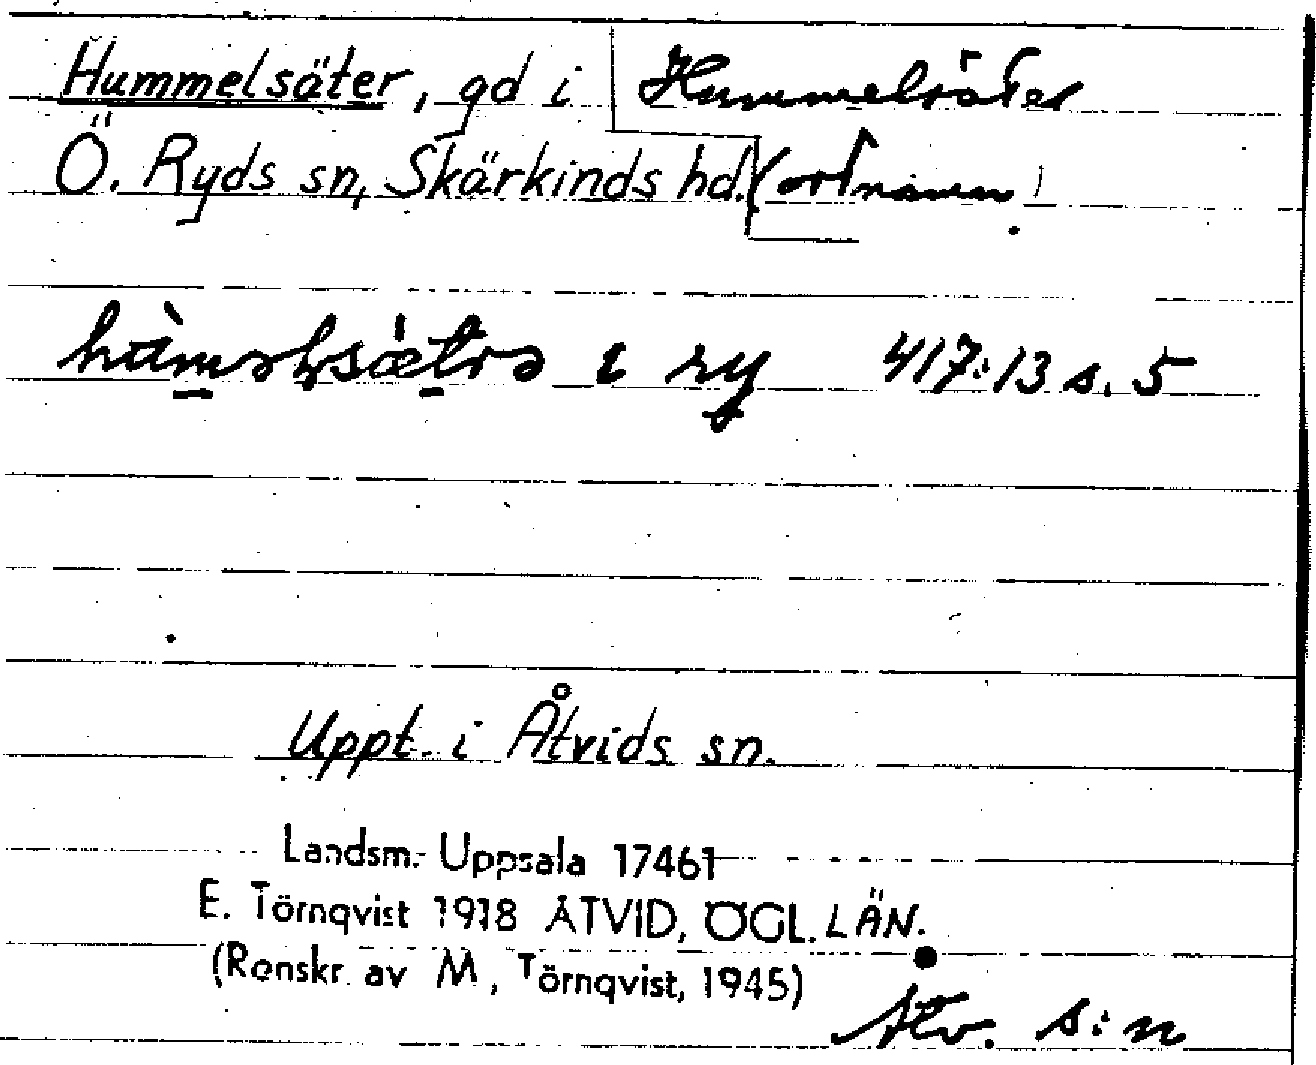 Hummelsäter, gd i Hummelsäter
Ö. Ryds sn, Skärkinds hd. (ortnamn)
i ry 417:13 s. 5
Uppt. i Åtvids sn.
Landsm. Uppsala 17461
E. Törnqvist 1918 ÅTVID, ÖGL. LÄN.
(Renskr. av M. Törnqvist, 1945)
Åtv. s:n